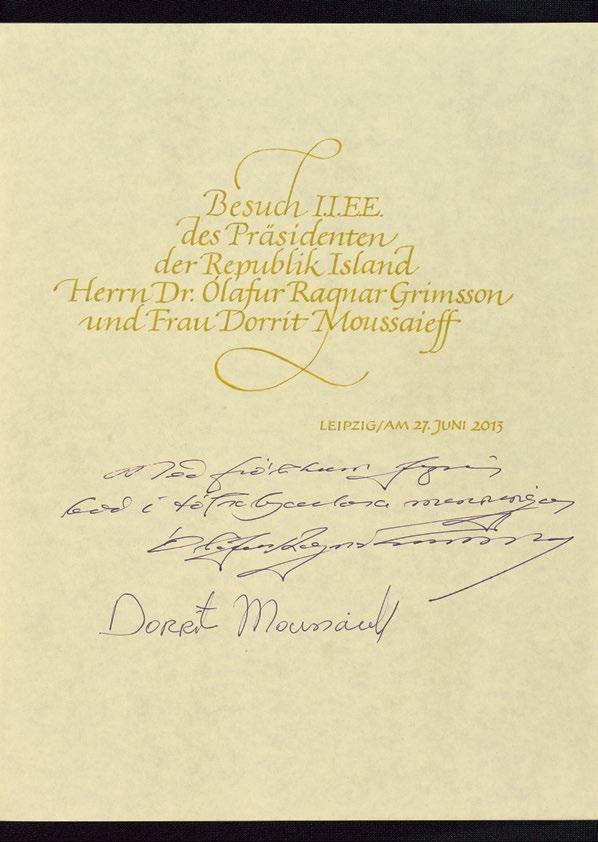 Besuch I.I.E.E.
des Präsidenten
der Republik Island
Herrn Dr. Ólafur Ragnar Grimsson
und Frau Dorrit Moussaieff
LEIPZIG/AM 27. JUNI 2013
Með fyrir
boð í
Ólafur Ragnar Grímsson
Dorrit Moussaieff